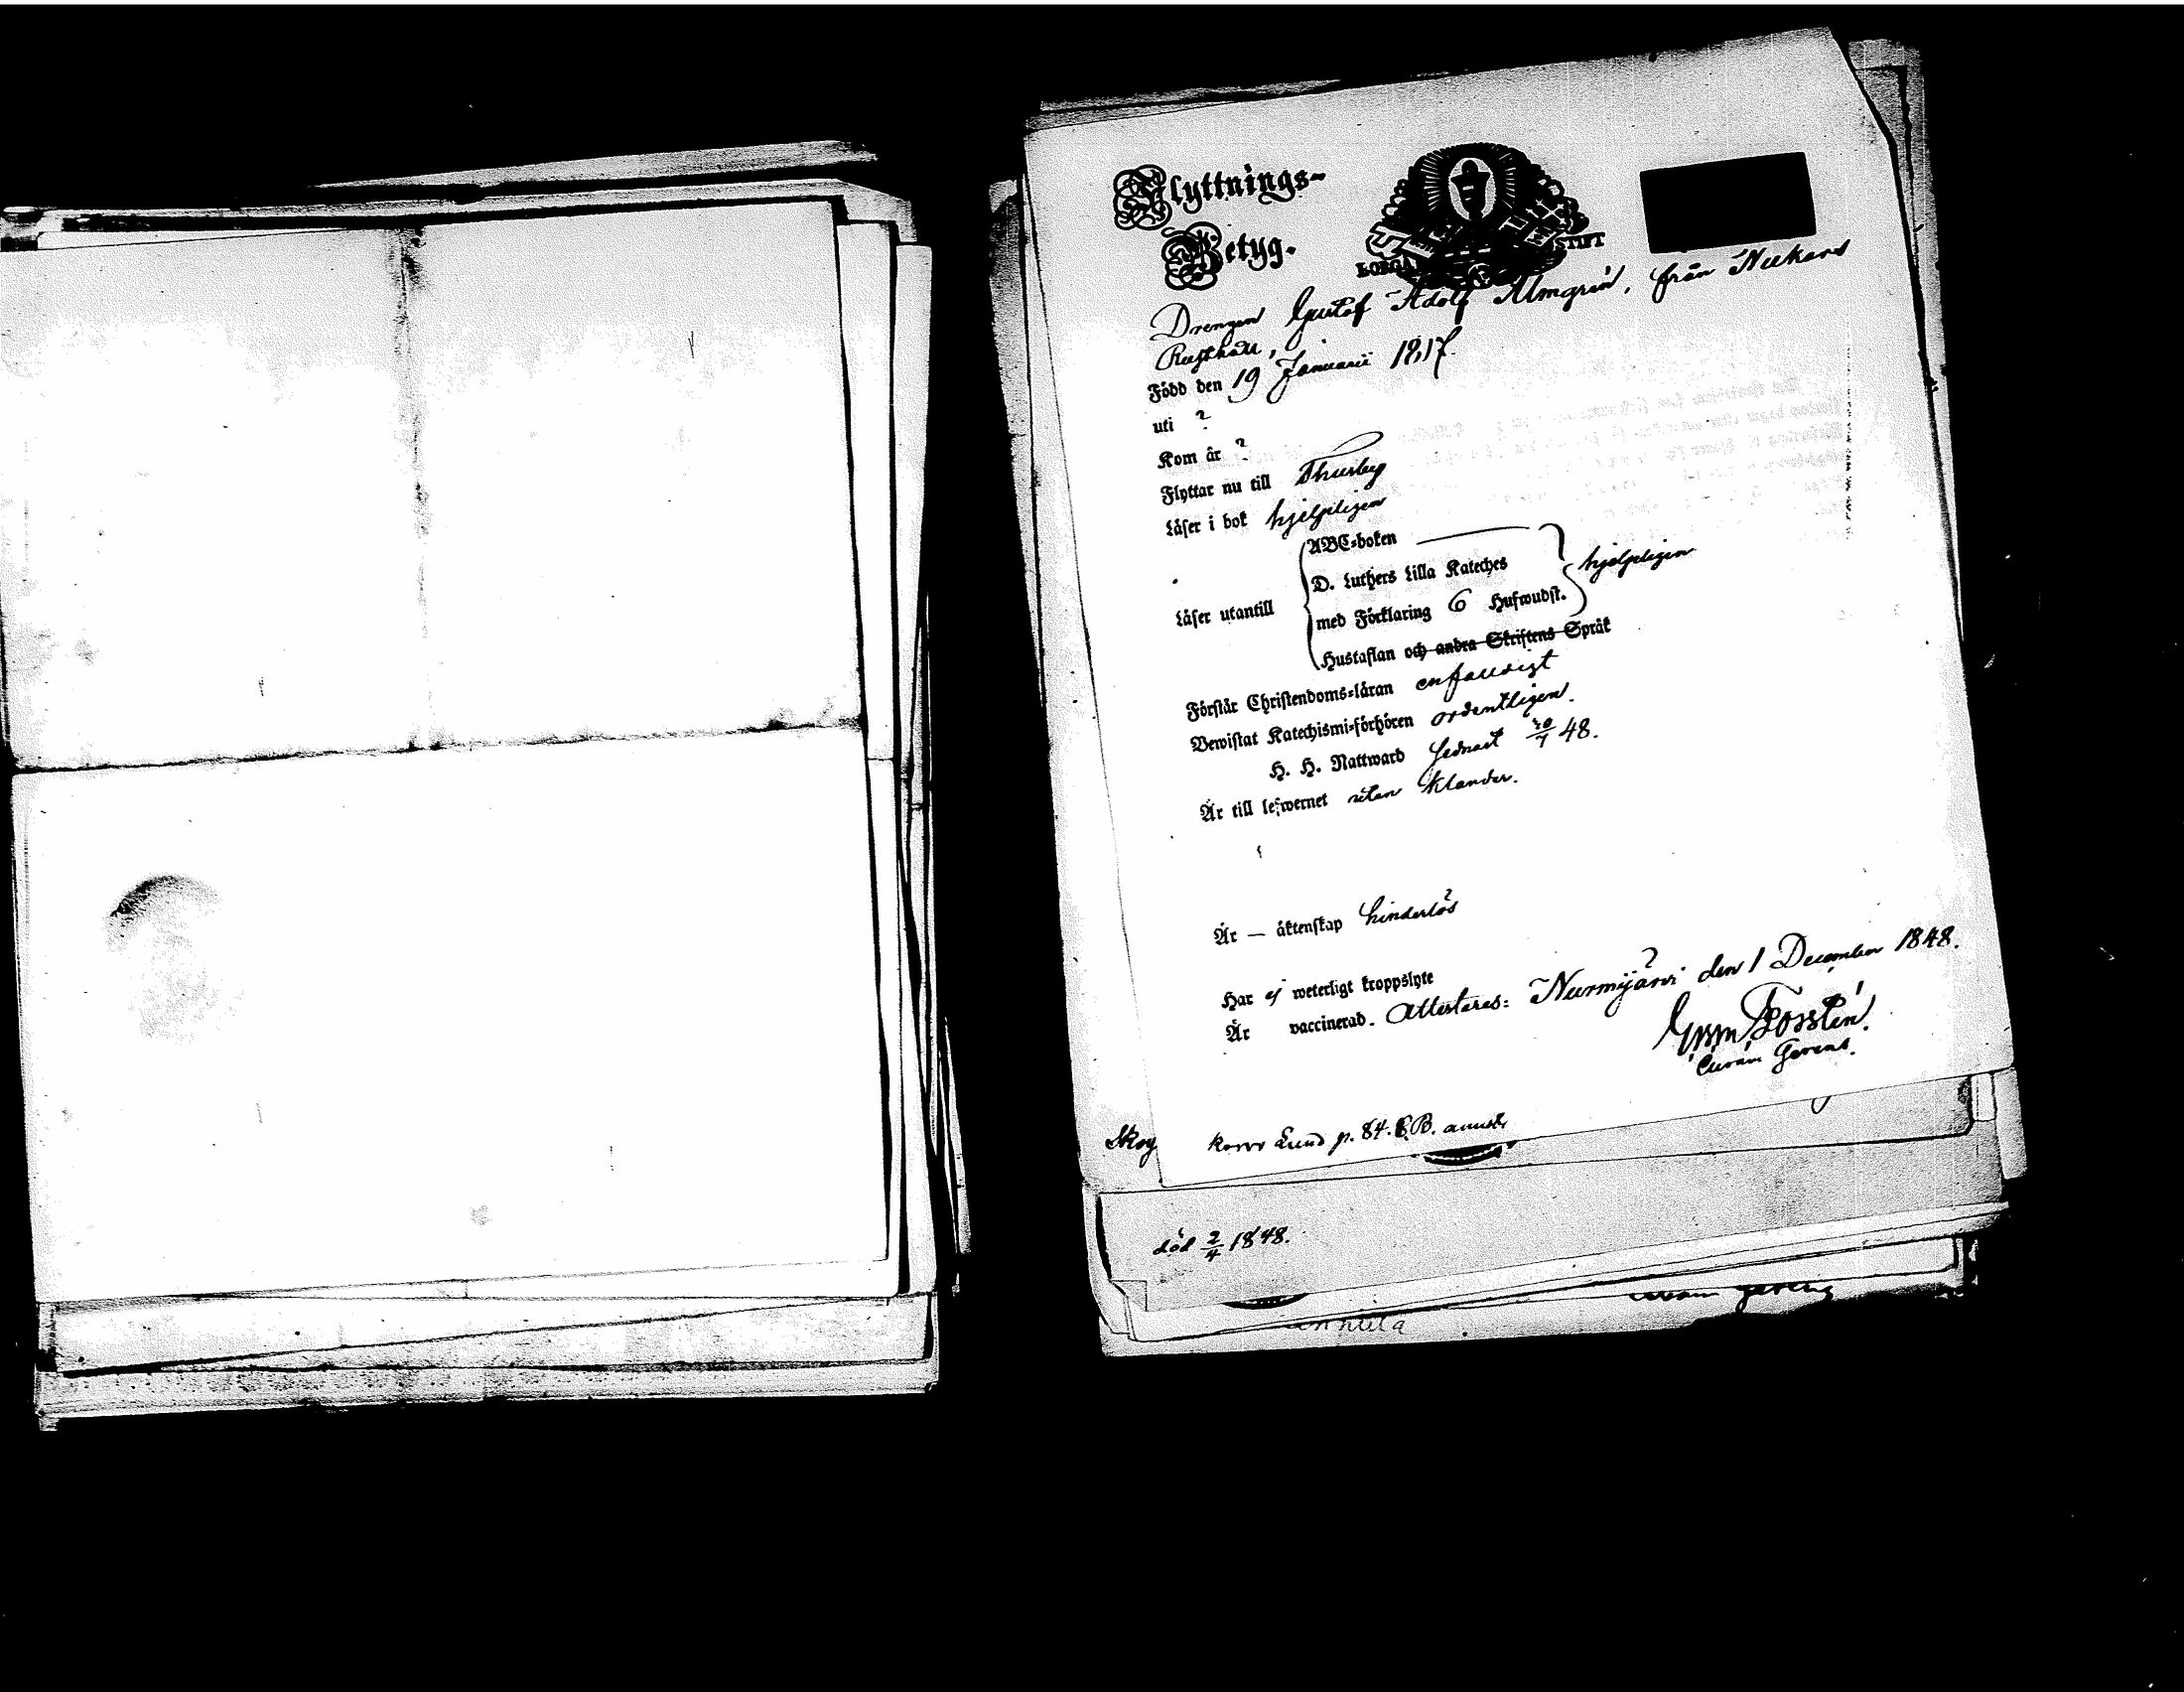 Flyttnings-
Betyg.
BORGÅ STIFT
Drengen Gustaf Adolf Almgrén, från Nukars
Rusthåll,
Född den 19 Januarii 1817.
uti ?
Kom år ?
Flyttar nu till Thusby
Läser i bok hjelpligen
Läser utantill
ABC-boken
D. Luthers Lilla Kateches
med Förklaring 6 Hufwudst.
hjelpligen
Hustaflan och andra Skriftens Språk
Förstår Christendoms-läran enfaldigt
Bewistat Katechismi-förhören ordentligen.
H. H. Nattward sednast 48.
Är till lefwernet utan klander.
Är — äktenskap hinderlös
Har ej weterligt kroppslyte
Är vaccinerad. Attesteras: Nurmijärvi den 1 December 1848.
Forstén.
Curam Gerens.
Skog
p. 84.
död 2/4 1848.
curam gerens